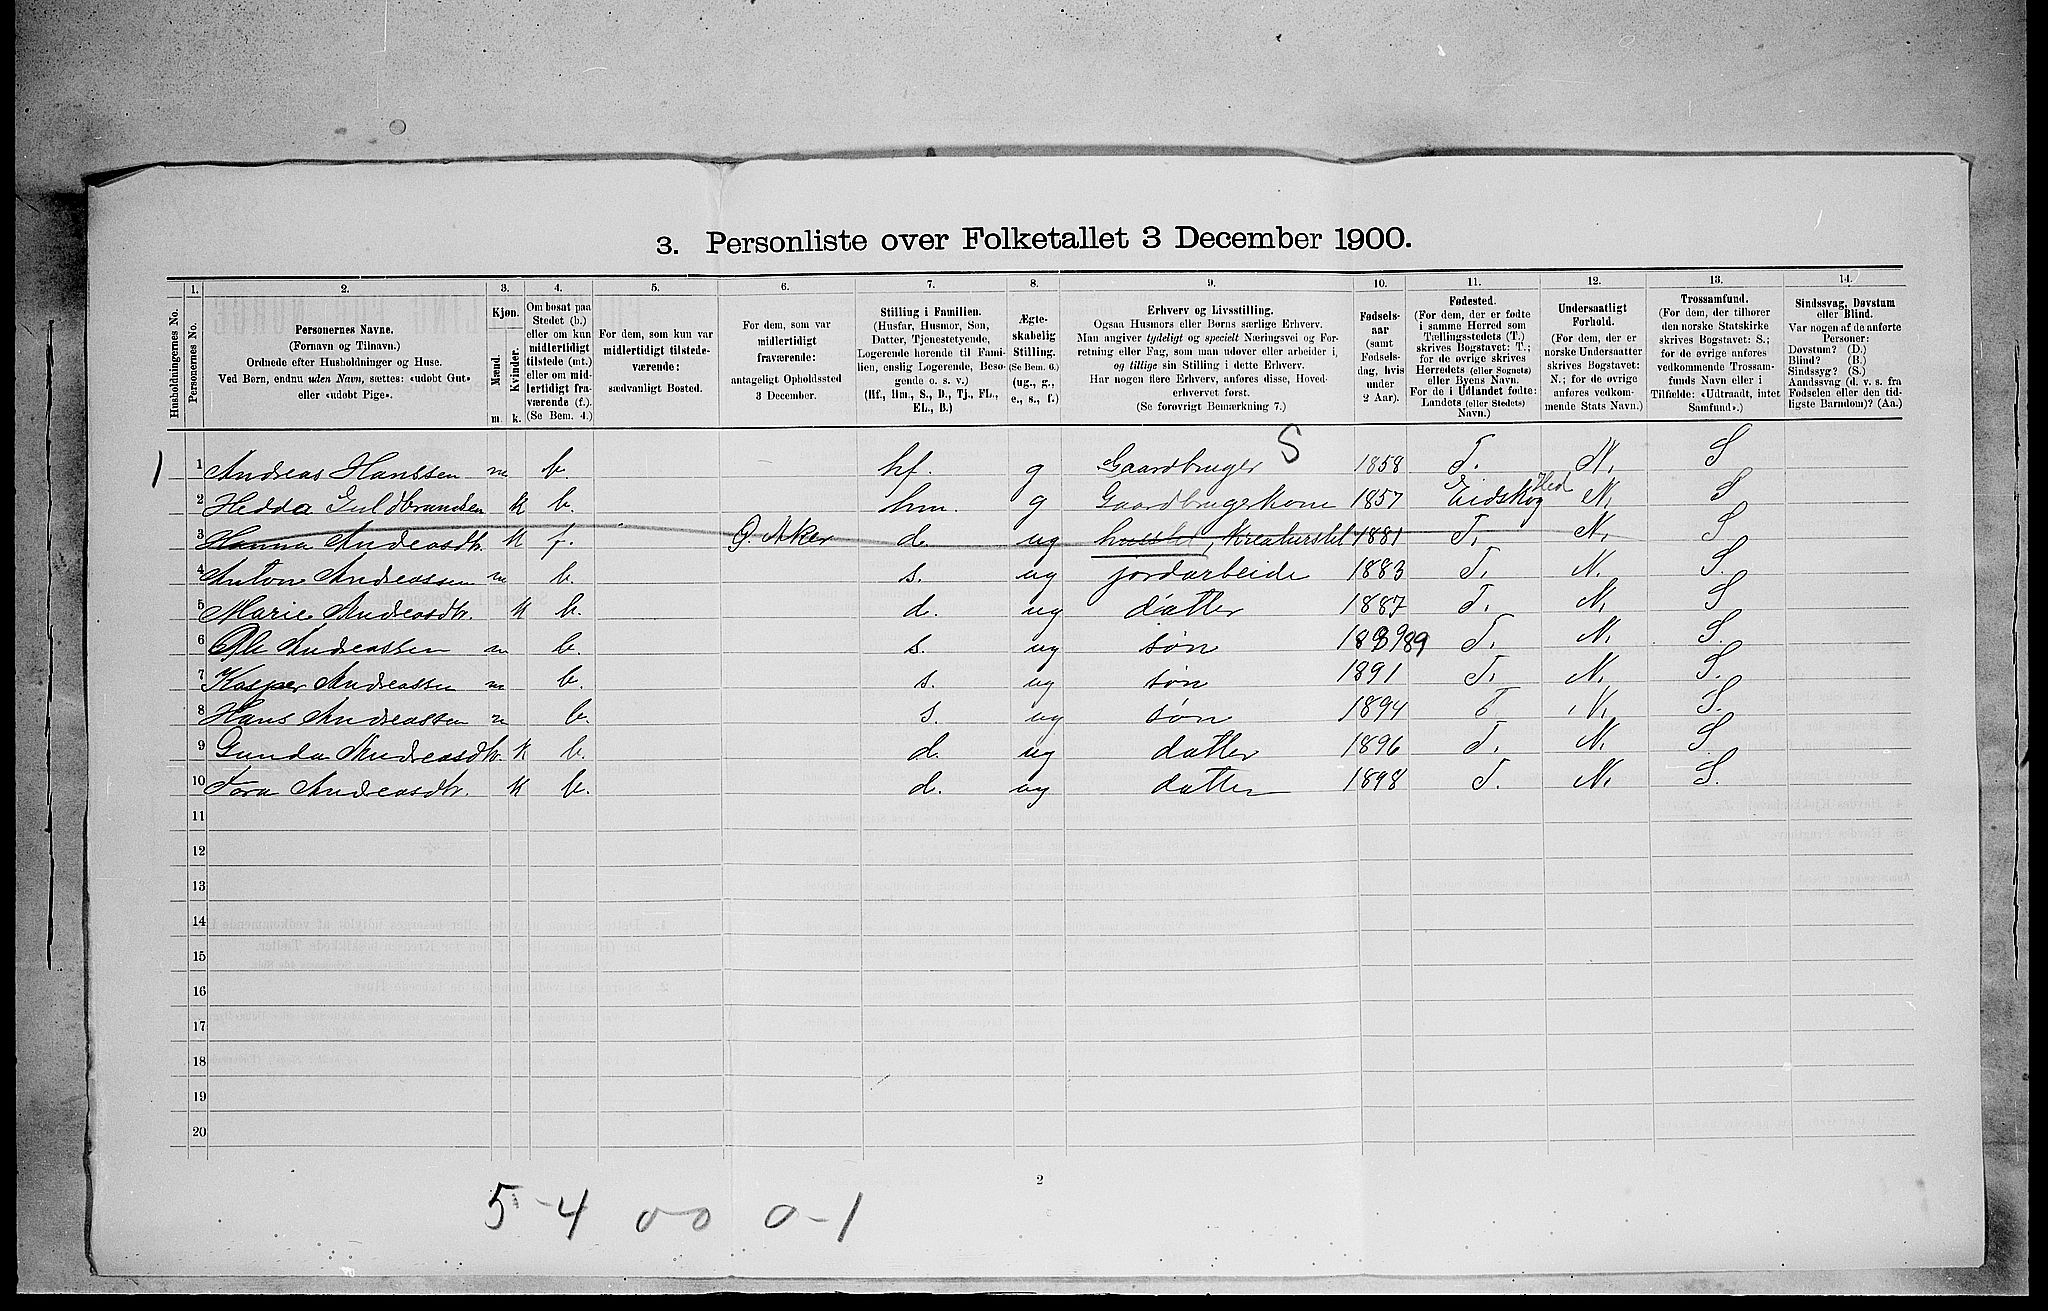 3. Personliste over Folketallet 3 December 1900.
1. 2. 3. 4. 5. 6. 7. 8. 9. 10. 11. 12. 13. 14.
Husholdningernes No.
Personernes No.
Personernes Navne.
(Fornavn og Tilnavn.)
Ordnede efter Husholdninger og Huse.
Ved Børn, endnu uden Navn, sættes: «udøbt Gut»
eller «udøbt Pige».
Kjøn.
Mænd.
Kvinder.
m. k.
Om bosat paa
Stedet (b.)
eller om kun
midlertidigt
tilstede (mt.)
eller om mid-
lertidigt fra-
værende (f.).
(Se Bem. 4.)
For dem, som kun var
midlertidigt tilstede-
værende:
sædvanligt Bosted.
For dem, som var
midlertidigt
fraværende:
antageligt Opholdssted
3 December.
Stilling i Familien.
(Husfar, Husmor, Søn,
Datter, Tjenestetyende,
Logerende hørende til Fami-
lien, enslig Logerende, Besø-
gende o. s. v.)
(Hf., Hm., S., D., Tj., FL.,
EL., B.)
Ægte-
skabelig
Stilling.
(Se Bem. 6.)
(ug., g.,
e., s., f.)
Erhverv og Livsstilling.
Ogsaa Husmors eller Børns særlige Erhverv.
Man angiver tydeligt og specielt Næringsvei og For-
retning eller Fag, som man udøver eller arbeider i,
og tillige sin Stilling i dette Erhverv.
Har nogen flere Erhverv, anføres disse, Hoved-
erhvervet først.
(Se forøvrigt Bemærkning 7.)
Fødsels-
aar
(samt
Fødsels-
dag, hvis
under
2 Aar).
Fødested.
(For dem, der er fødte
i samme Herred som
Tællingsstedets (T.)
skrives Bogstavet: T.;
for de øvrige skrives
Herredets (eller Sognets)
eller Byens Navn.
For de i Udlandet fødte:
Landets (eller Stedets)
Navn.)
Undersaatligt
Forhold.
(For dem, der er
norske Undersaatter
skrives Bogstavet:
N.; for de øvrige
anføres vedkom-
mende Stats Navn.)
Trossamfund.
(For dem, der tilhører
den norske Statskirke
skrives Bogstavet: S.;
for de øvrige anføres
vedkommende Trossam-
funds Navn eller i
Tilfælde: «Udtraadt, intet
Samfund».)
Sindssvag, Døvstum
eller Blind.
Var nogen af de anførte
Personer:
Døvstum? (D.)
Blind? (B.)
Sindssyg? (S.)
Aandssvag (d. v. s. fra
Fødselen eller den tid-
ligste Barndom)? (Aa.)
S
1 1 Andreas Hanssen m b. hf. g Gaardbruger 1858 T. N. S
2 Hedda Guldbrandsen K b. hm. g Gaardbrugerkone 1857 Eidskog Hed N. S
3 Hanna Andreasdtr. K f. Ø. Aker d. ug husstel, Kreaturstel 1881 T. N. S
4 Anton Andreassen m b. s. ug jordarbeide 1883 T. N. S.
5 Marie Andreasdtr. K b. d. ug datter 1887 T. N. S
6 Ole Andreassen m b. s. ug søn 1889 89 T. N. S.
7 Kasper Andreassen m b. s. ug søn 1891 T. N. S.
8 Hans Andreassen m b. s. ug søn 1894 T N. S.
9 Gunda Andreasdtr. K b. d. ug datter 1896 T. N. S
10 Tora Andreasdtr. K b. d. ug datter 1898 T. N. S.
11
12
13
14
15
16
17
18
19
20
2
5-4 00 0-1